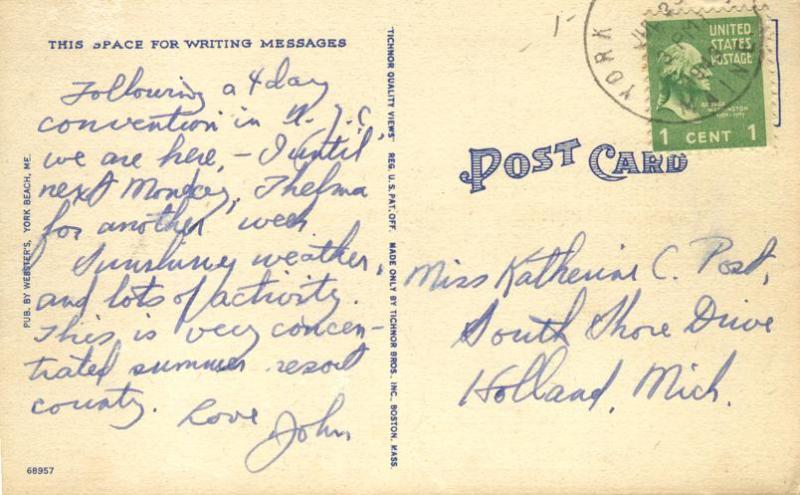 THIS SPACE FOR WRITING MESSAGES
Following a 4 day
convention in N.Y.C.,
we are here, – I until
next Monday, Thelma
for another week.
Sunshiny weather,
and lots of activity.
This is very concen-
trated summer resort
county.
Love
John
68957
PUB. BY WEBSTER'S, YORK BEACH, ME.
"TICHNOR QUALITY VIEWS" REG. U.S. PAT. OFF. MADE ONLY BY TICHNOR BROS., INC., BOSTON, MASS.
POST CARD
Miss Katherine C. Post,
South Shore Drive
Holland, Mich.
YORK
UNITED
STATES
POSTAGE
GEORGE
WASHINGTON
1 CENT 1